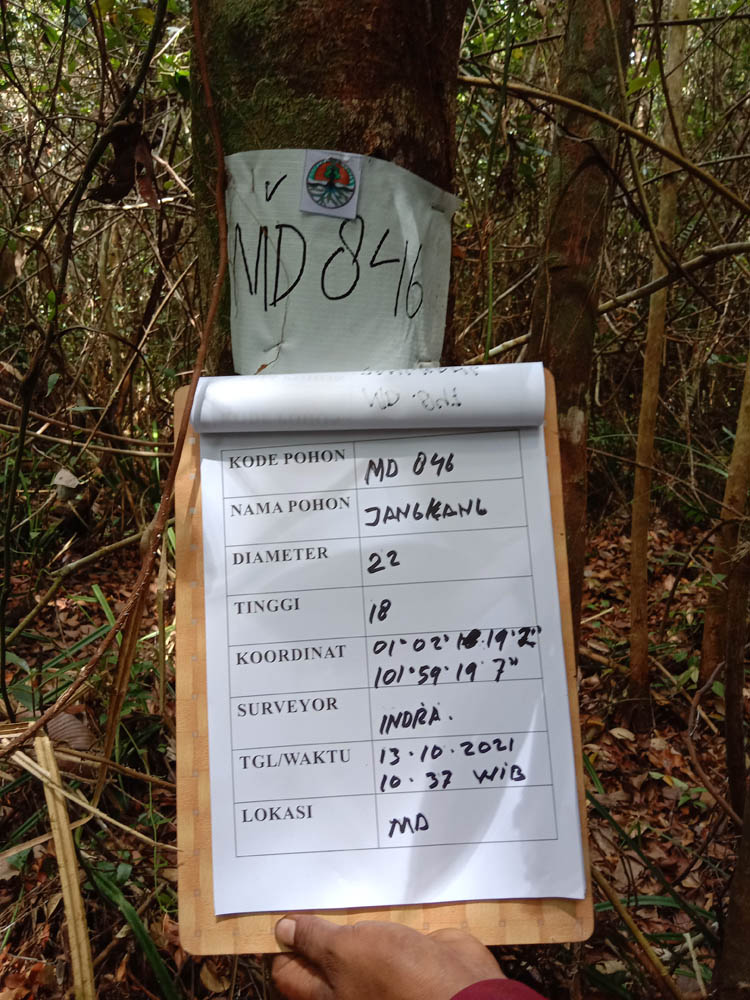 MD 846
MD 847
KODE POHON MD 846
NAMA POHON JANGKANG
DIAMETER 22
TINGGI 18
KOORDINAT 01°02' 19.2"
101°59.19 7"
SURVEYOR INDRA.
TGL/WAKTU 13.10.2021
10.37 WIB
LOKASI MD